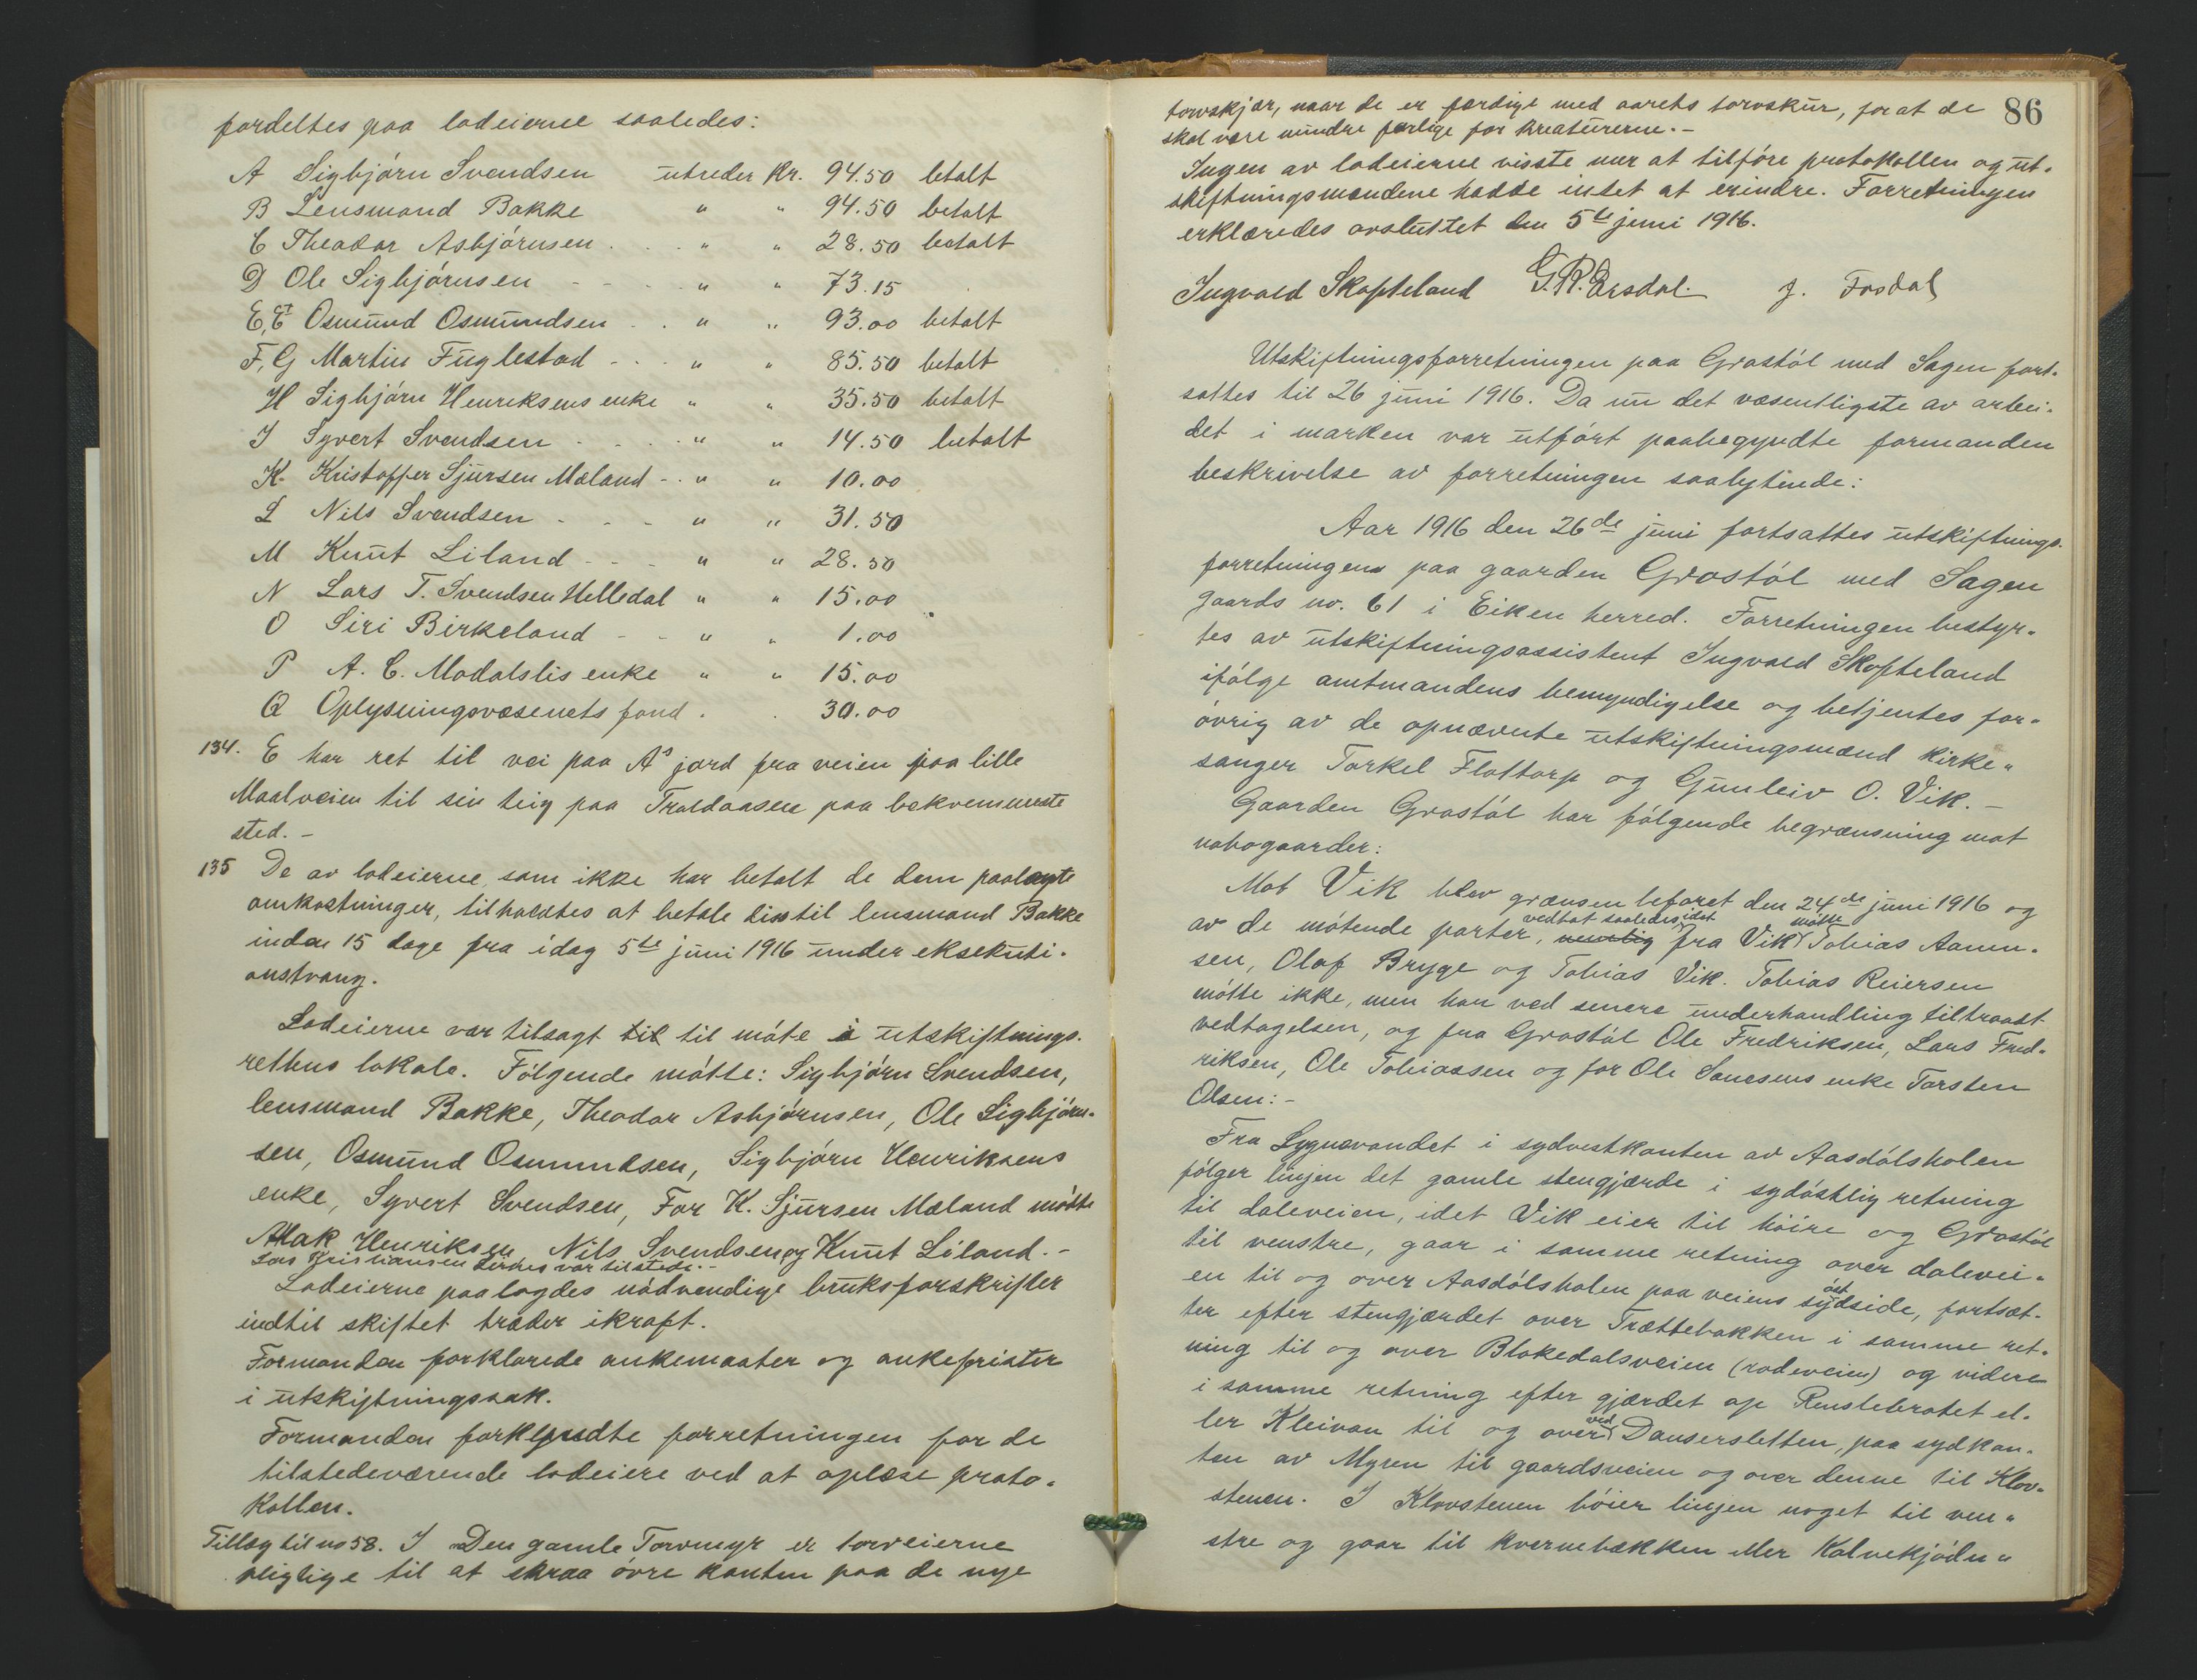 fordeltes paa lodeierne saaledes:
A Sigbjórn Svendsen utreder Kr. 94.50 betalt
B Lensmand Bakke " " 94.50 betalt
C Theodor Asbjórnsen . . . " " 28.50 betalt
D Ole Sigbjórnsen - - - " " 73.15
E, E¹ Osmund Osmundsen . . " " 93.00 betalt
F, G Martin Fuglestad - - . " " 85.50 betalt
H Sigbjórn Henriksens enke " " 35.50 betalt
J Syvert Svendsen - . . . " " 14.50 betalt
K- Kristoffer Sjursen Mæland - . " " 10.00
L Nils Svendsen - - - " " 31.50
M Knut Liland - - - " " 28.50
N Lars T. Svendsen Helledal " " 15.00
O Siri Birkeland - - " " 1.00
P A. C. Modalslis enke " " 15.00
Q Oplysningsvæsenets fond . . 30.00
134. E har ret til vei paa A's jord fra veien paa lille
Maalveien til sin teig paa Traldaasen paa bekvemmeste
sted. -
135 De av lodeierne, som ikke har betalt de dem paalagte
omkostninger, tilholdtes at betale disse til lensmand Bakke
inden 15 dage fra idag 5te juni 1916 under eksekuti-
onstvang.
Lodeierne var tilsagt til til móte i utskiftnings-
rettens lokale. Fólgende mótte: Sigbjórn Svendsen,
lensmand Bakke, Theodor Asbjórnsen, Ole Sigbjórn-
sen, Osmund Osmundsen, Sigbjórn Henriksens
enke, Syvert Svendsen, For K. Sjursen Mæland mótte
Aslak Henriksen, Nils Svendsen og Knut Liland. -
Lars Kristiansen var tilstede. -
Lodeierne paalagdes nódvendige bruksforskrifter
indtil skiftet træder ikraft.
Formanden forklarede ankemaater og ankefrister
i utskiftningssak.
Formanden forkyndte forretningen for de
tilstedeværende lodeiere ved at oplæse proto-
kollen.
Tillæg til no 58. I Den gamle Torvmyr er torveierne
pligtige til at skraa óvre kanten paa de nye
86
torvskjær, naar de er færdige med aarets torvskur, for at de
skal være mindre farlige for kreaturerne. -
Ingen av lodeierne visste mer at tilfóre protokollen og ut-
skiftningsmændene hadde intet at erindre. Forretningen
erklæredes avsluttet den 5te juni 1916.
Ingvald Skofteland G. R. Ersdal. J. Fosdal
Utskiftningsforretningen paa Gråstól med Sagen fort-
sattes til 26 juni 1916. Da nu det væsentligste av arbei-
det i marken var utfórt paabegyndte formanden
beskrivelse av forretningen saalydende:
Aar 1916 den 26de juni fortsattes utskiftnings-
forretningen paa gaarden Gråstól med Sagen
gaards no. 61 i Eiken herred. Forretningen bestyr-
tes av utskiftningsassistent Ingvald Skofteland
ifólge amtmandens bemyndigelse og betjentes for-
óvrig av de opnævnte utskiftningsmænd kirke-
sanger Torkel Flottorp og Gunleiv O. Vik. -
Gaarden Gråstól har fólgende begrænsning mot
nabogaarder:
Mot Vik blev grænsen befaret den 24de juni 1916 og
vedtat saaledes idet mótte
av de mótende parter, nemlig fra Vik Tobias Aamn-
sen, Olaf Brygge og Tobias Vik. Tobias Reiersen
mótte ikke, men har ved senere underhandling tiltraadt
vedtagelsen, og fra Gråstól Ole Fredriksen, Lars Fred-
riksen, Ole Tobiassen og for Ole Sanesens enke Torsten
Olsen: -
Fra Lygnevandet i sydvestkanten av Aasdólsholen
fólger linjen det gamle stengjærde i sydóstlig retning
til daleveien, idet Vik eier til hóire og Gråstól
til venstre, gaar i samme retning over dalevei-
en til og over Aasdólsholen paa veiens sydside, fortsæt-
óst
ter efter stengjærdet over Trættebakken i samme ret-
ning til og over Blokedalsveien (rodeveien) og videre
i samme retning efter gjærdet op Renslebrotet el-
ved
ler Kleivan til og over Dansersletten, paa sydkan-
ten av Myren til gaardsveien og over denne til Klov-
stenen. I Klovstenen bóier linjen noget til ven-
stre og gaar til kvernebækken eller Kalvekjódn-